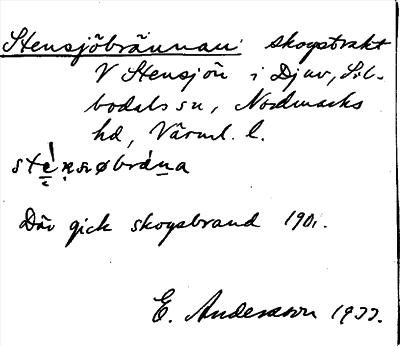 Stensjöbrännan: skogstrakt
V Stensjön i Djuv, Sil-
bodals sn, Nordmarks
hd, Värml. l.
Där gick skogsbrand 1901.
E. Andersson 1933.